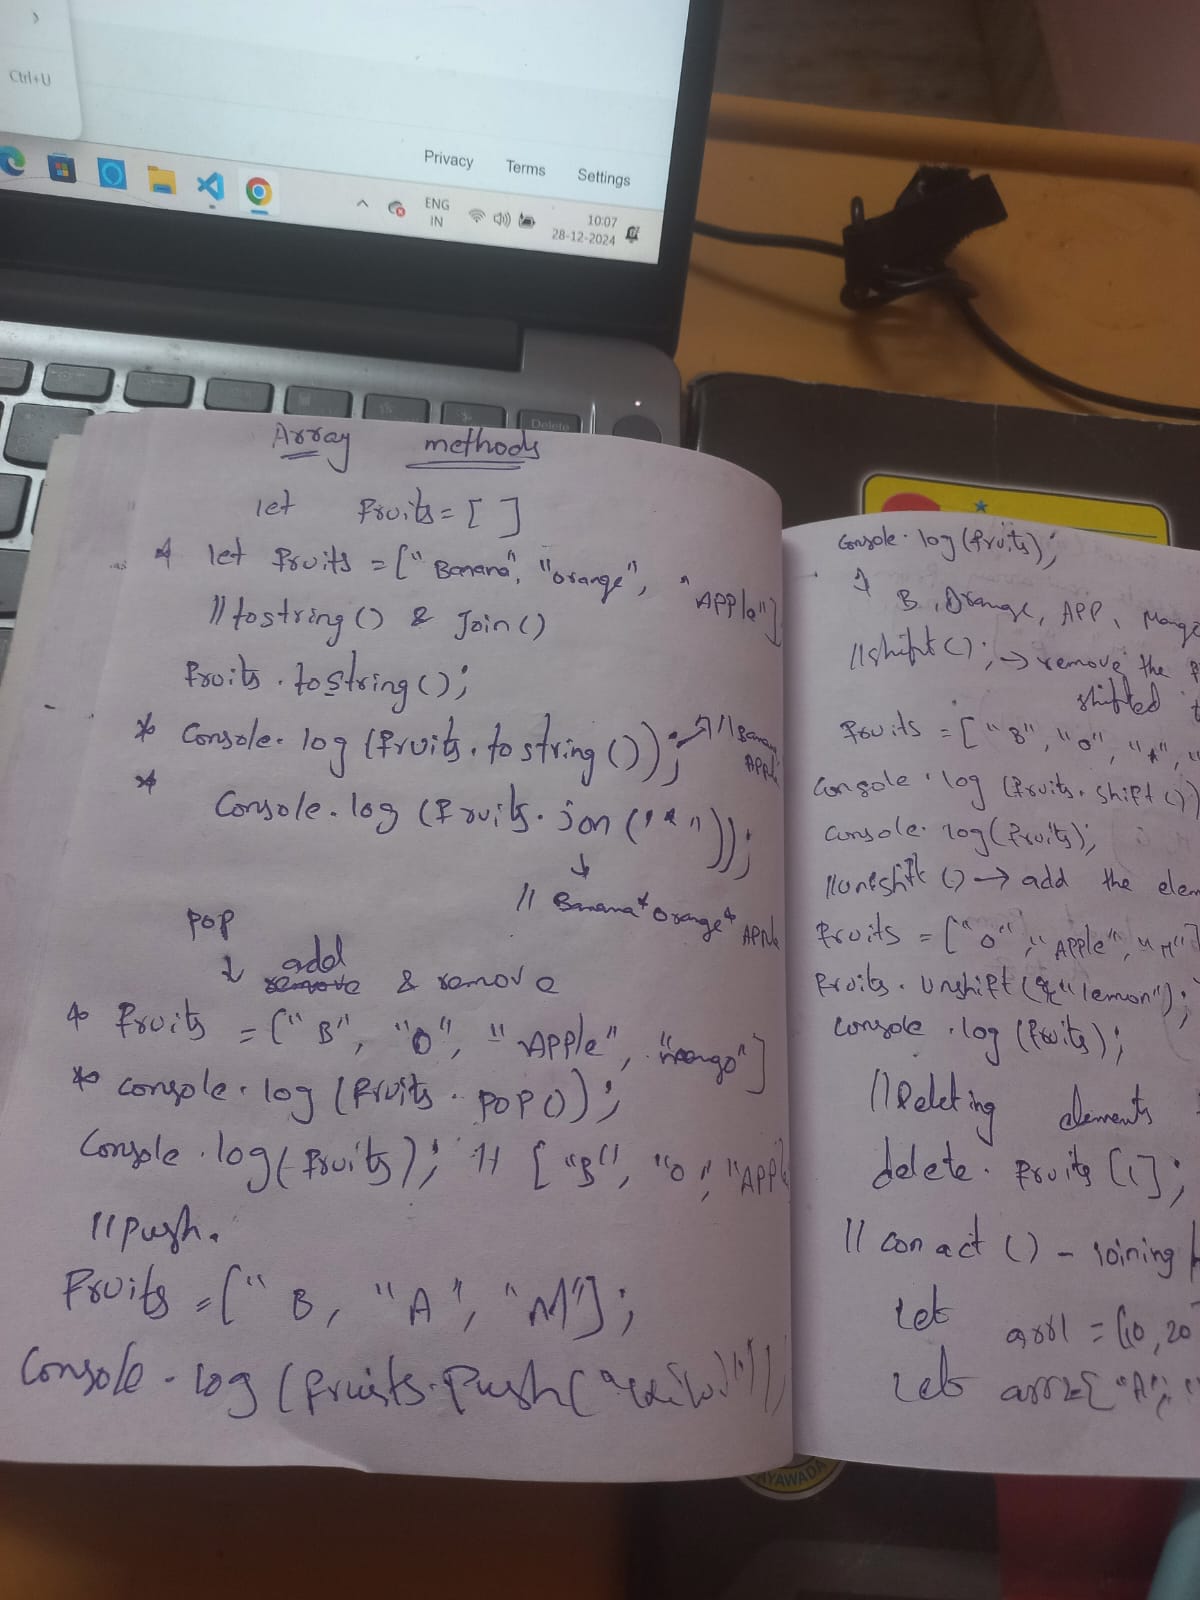 Ctrl+U
Privacy Terms Settings
ENG
IN
10:07
28-12-2024
Delete
Array methods
let fruits = [ ]
* let fruits = ["Banana", "orange", "APPle"]
// tostring () & Join ()
fruits . tostring ();
* Console. log (fruits. to string ()); → // Banana
APPle
* Console. log (fruits. jon ("*"));
↓
// Banana* Orange* APPle
POP
↓ add
remove & remove
* fruits = ("B", "O", "APPle", "mango"]
* console. log (fruits . POP ());
Console . log (fruits); // ["B", "O", "APPl
// push.
Fruits = [" B, "A", "M"];
Console . log (fruits. Push (
Console. log (fruits);
B, Orange, APP, Mang
// shift (); → remove the
shifted
fruits = ["B", "O", "A", "
Console . log (fruits. shift ())
console. log (fruits);
// unshift () → add the elem
fruits = ["O", "APPle", "M"]
fruits. unshift ("lemon");
console . log (fruits);
// Deleting elements
delete. fruits [1];
// conact () - Joining
Let arr1 = [10, 20
Let arr2 [ "A",
YAWADA